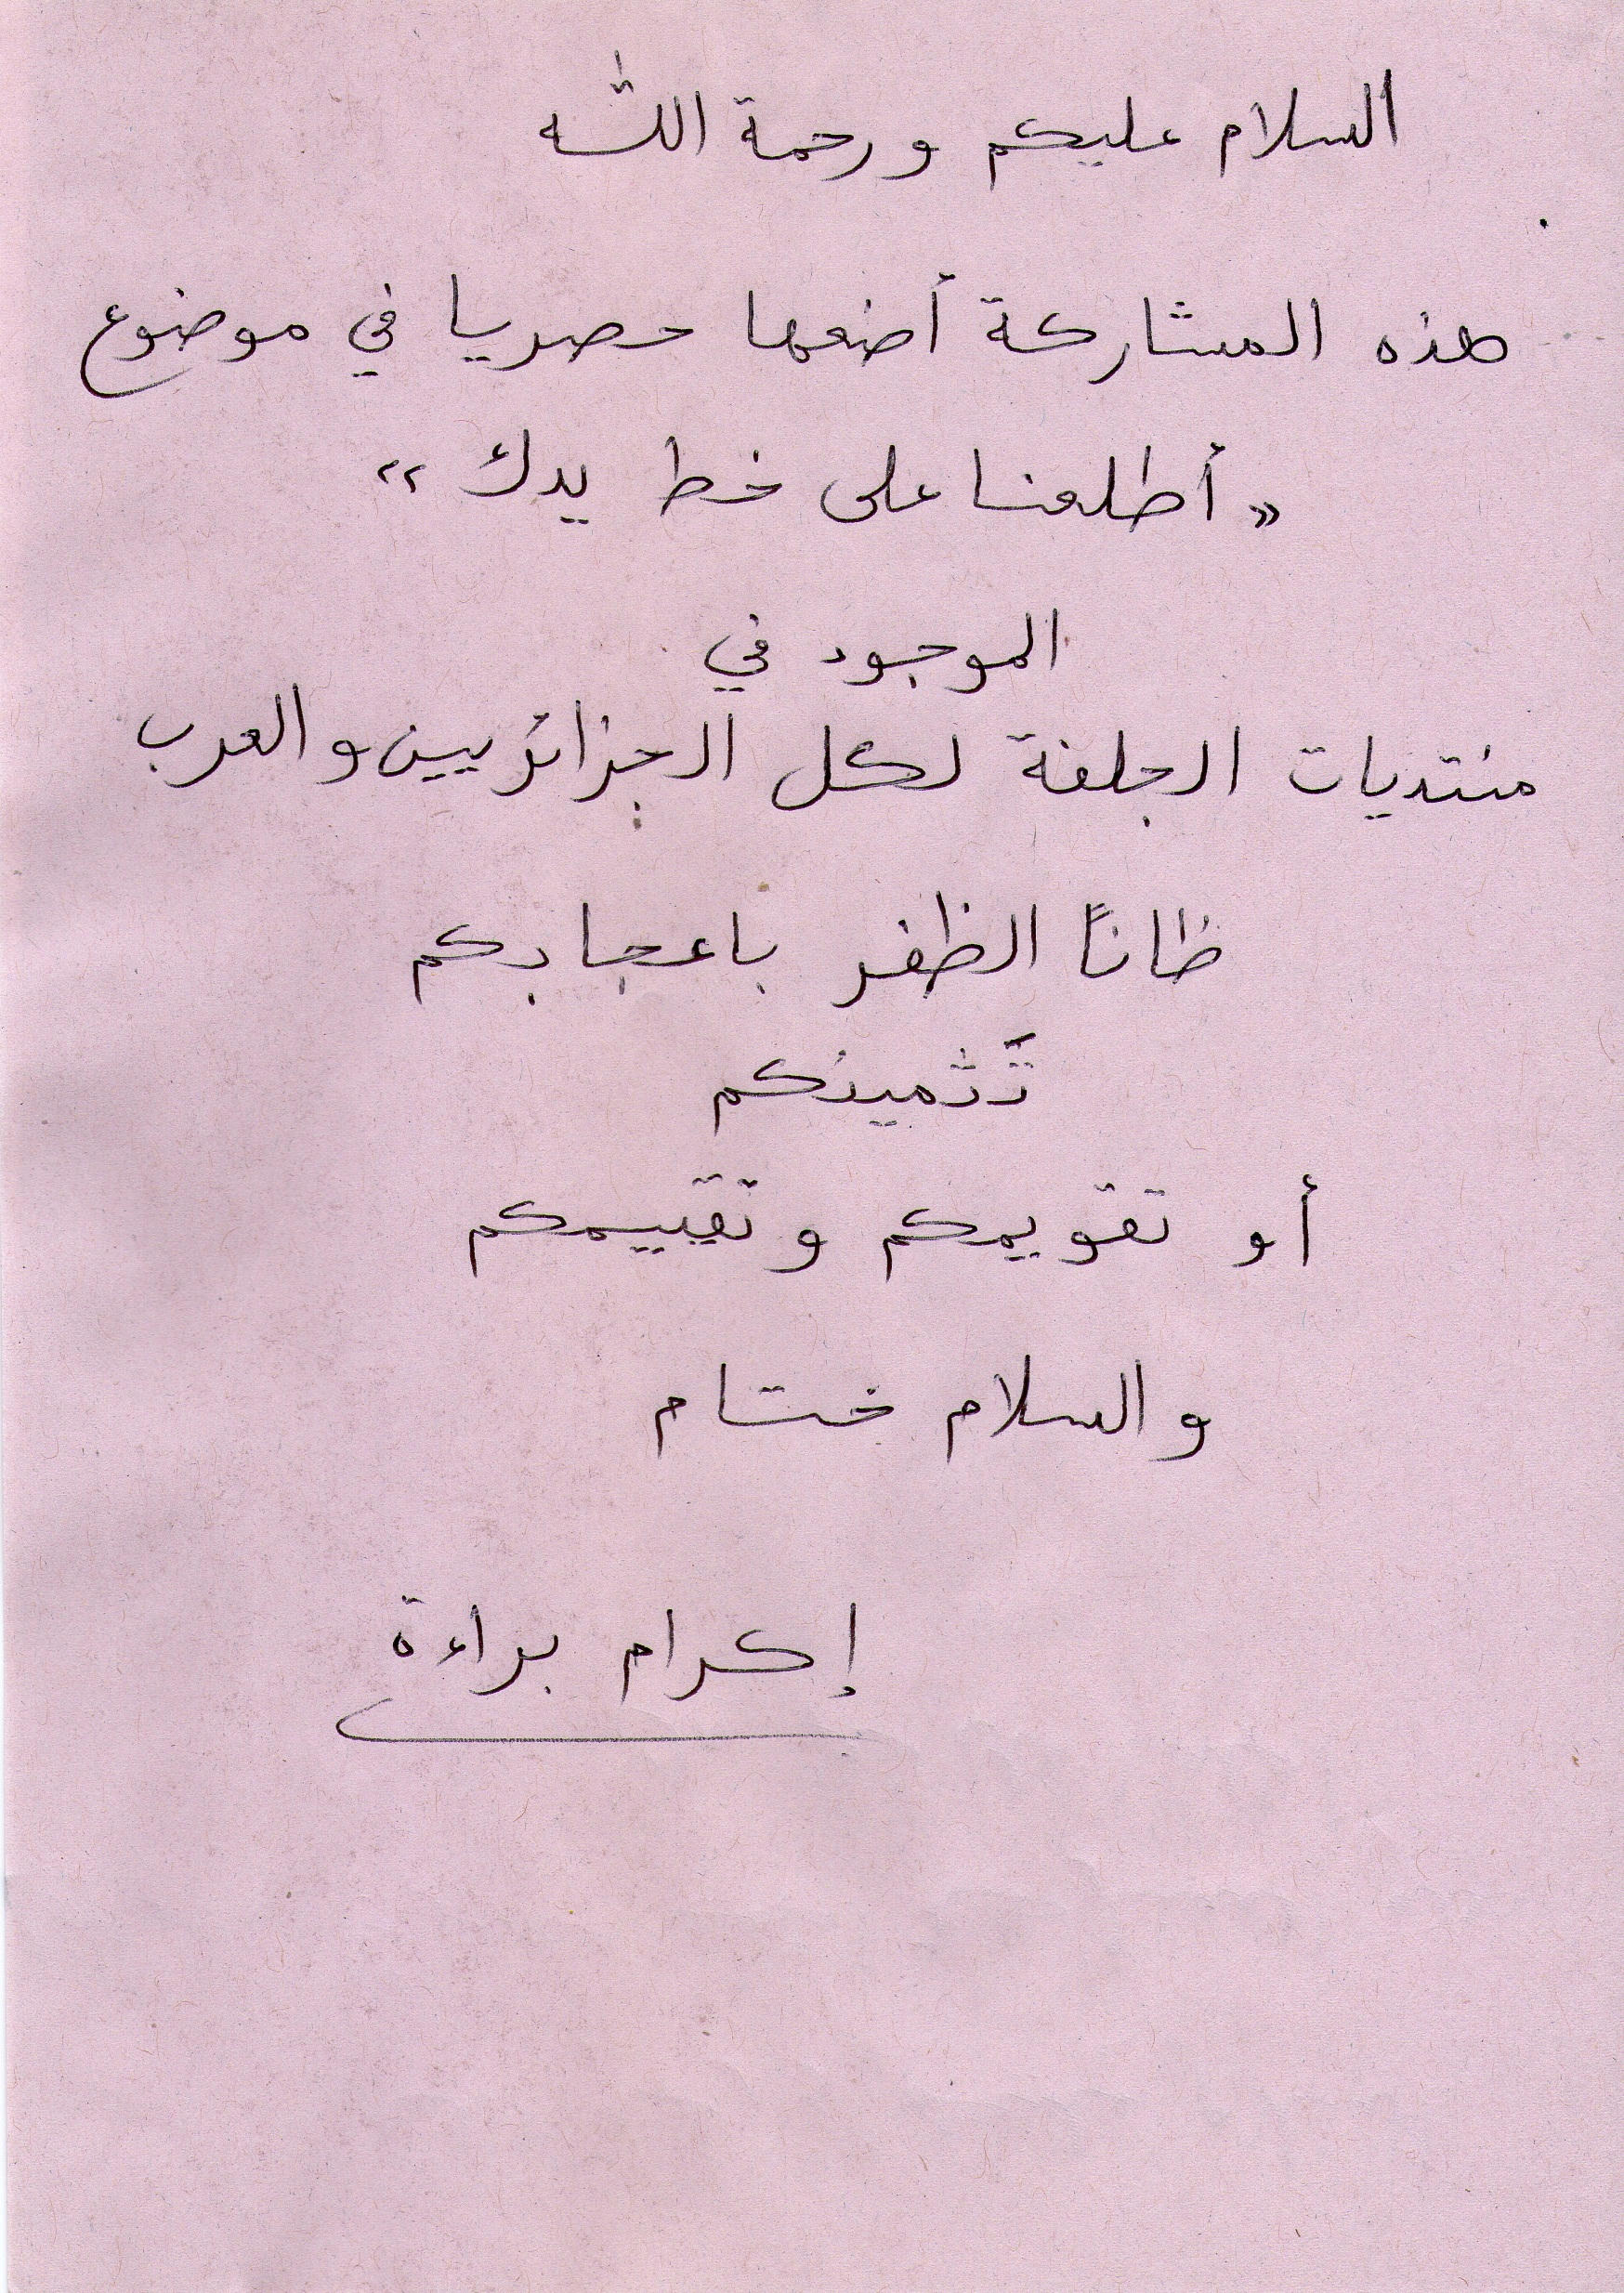 السلام عليكم ورحمة اللّه
هذه المشاركة أضعها حصريا في موضوع
« أطلعنا على خط يدك »
الموجود في
منتديات الجلفة لكل الجزائريين والعرب
ظاناً الظفر باعجابكم
تَثمينكم
أو تقويمكم وتقييمكم
والسلام ختام
إكرام براءة